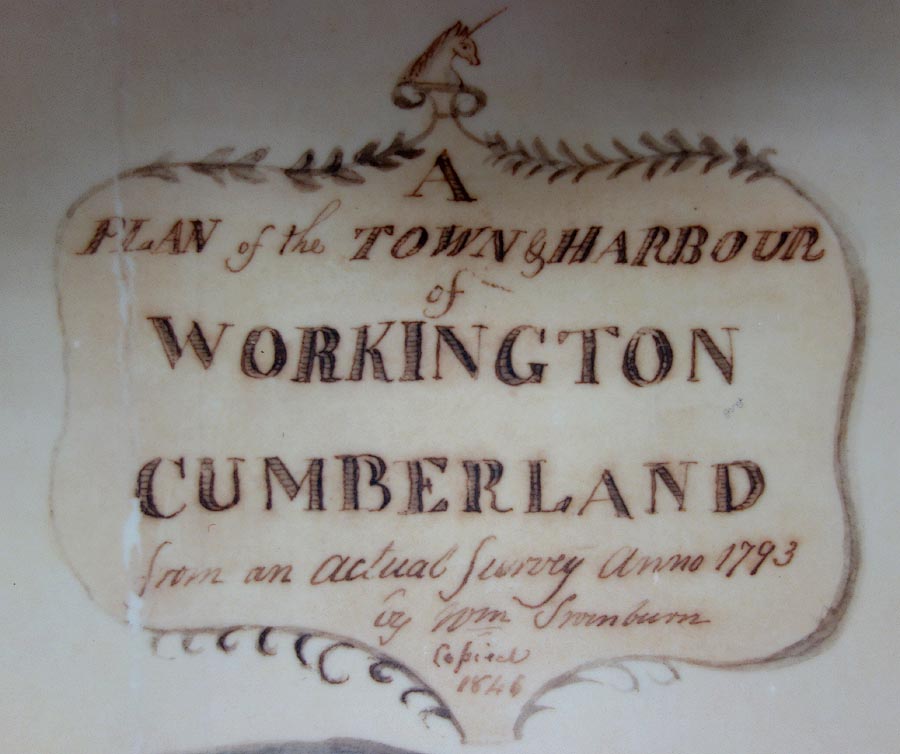 A
PLAN of the TOWN & HARBOUR
of
WORKINGTON
CUMBERLAND
from an actual Survey Anno 1793
by Wm
Copied
1846